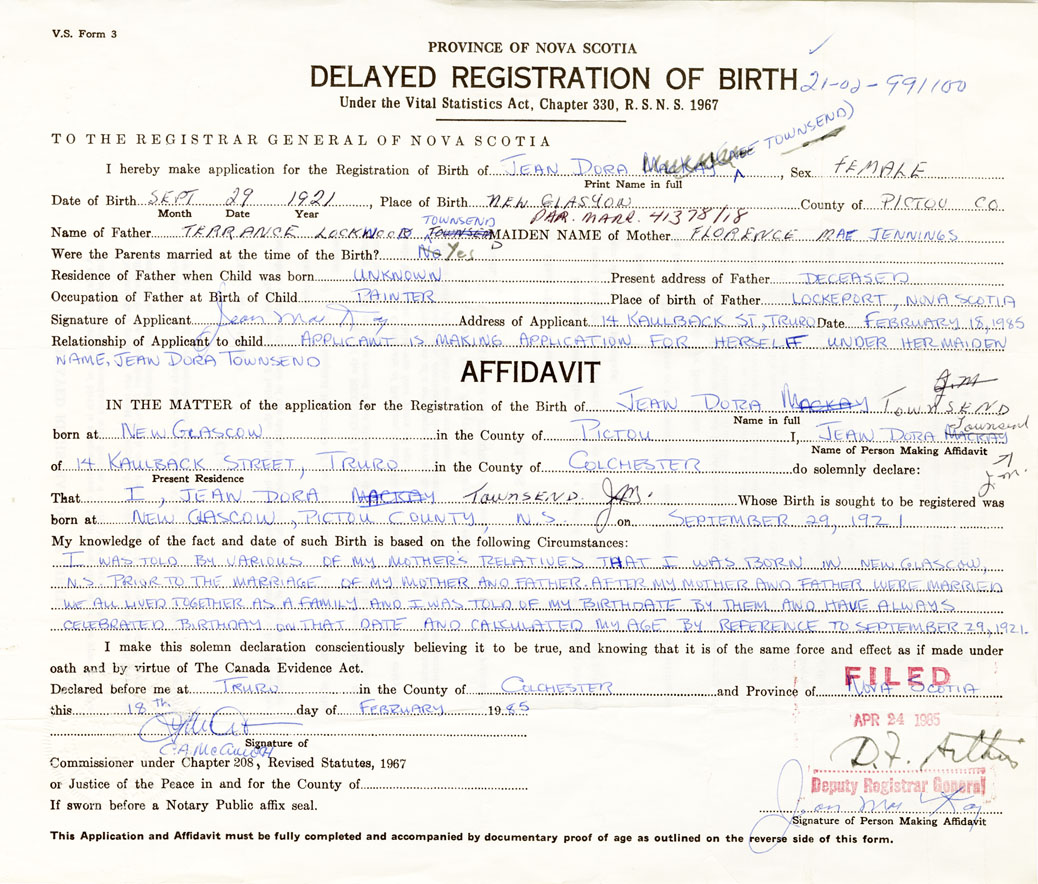 V.S. Form 3
PROVINCE OF NOVA SCOTIA
DELAYED REGISTRATION OF BIRTH 21-02-991100
Under the Vital Statistics Act, Chapter 330, R.S.N.S. 1967
TO THE REGISTRAR GENERAL OF NOVA SCOTIA
TOWNSEND)
I hereby make application for the Registration of Birth of JEAN DORA MACKAY, Sex FEMALE
Print Name in full
Date of Birth SEPT 29 1921, Place of Birth NEW GLASGOW County of PICTOU CO
Month Date Year
PAR. MARR. 41378/18
TOWNSEND
Name of Father TERRANCE LOCKWOOD TOWNSEND MAIDEN NAME of Mother FLORENCE MAE JENNINGS
Were the Parents married at the time of the Birth? No Yes
Residence of Father when Child was born UNKNOWN Present address of Father DECEASED
Occupation of Father at Birth of Child PAINTER Place of birth of Father LOCKEPORT, NOVA SCOTIA
Signature of Applicant Jean MacKay Address of Applicant 14 KAULBACK ST, TRURO Date FEBRUARY 18, 1985
Relationship of Applicant to child APPLICANT IS MAKING APPLICATION FOR HERSELF UNDER HER MAIDEN
NAME, JEAN DORA TOWNSEND
AFFIDAVIT
J.M
IN THE MATTER of the application for the Registration of the Birth of JEAN DORA MACKAY TOWNSEND
Name in full
Townsend
born at NEW GLASCOW in the County of PICTOU I, JEAN DORA MACKAY
Name of Person Making Affidavit
of 14 KAULBACK STREET, TRURO in the County of COLCHESTER do solemnly declare: J.M.
Present Residence
That I, JEAN DORA MACKAY TOWNSEND J.M. Whose Birth is sought to be registered was
born at NEW GLASCOW, PICTOU COUNTY, N.S. on SEPTEMBER 29, 1921
My knowledge of the fact and date of such Birth is based on the following Circumstances:
I WAS TOLD BY VARIOUS OF MY MOTHER'S RELATIVES THAT I WAS BORN IN NEW GLASCOW,
N.S. PRIOR TO THE MARRIAGE OF MY MOTHER AND FATHER. AFTER MY MOTHER AND FATHER WERE MARRIED
WE ALL LIVED TOGETHER AS A FAMILY AND I WAS TOLD OF MY BIRTHDATE BY THEM AND HAVE ALWAYS
CELEBRATED BIRTHDAY ON THAT DATE AND CALCULATED MY AGE BY REFERENCE TO SEPTEMBER 29, 1921.
I make this solemn declaration conscientiously believing it to be true, and knowing that it is of the same force and effect as if made under
oath and by virtue of The Canada Evidence Act.
FILED
Declared before me at TRURO in the County of COLCHESTER and Province of NOVA SCOTIA
this 18th day of FEBRUARY 1985
APR 24 1985
Signature of
Commissioner under Chapter 208, Revised Statutes, 1967
or Justice of the Peace in and for the County of
Deputy Registrar General
If sworn before a Notary Public affix seal.
Jean MacKay
Signature of Person Making Affidavit
This Application and Affidavit must be fully completed and accompanied by documentary proof of age as outlined on the reverse side of this form.